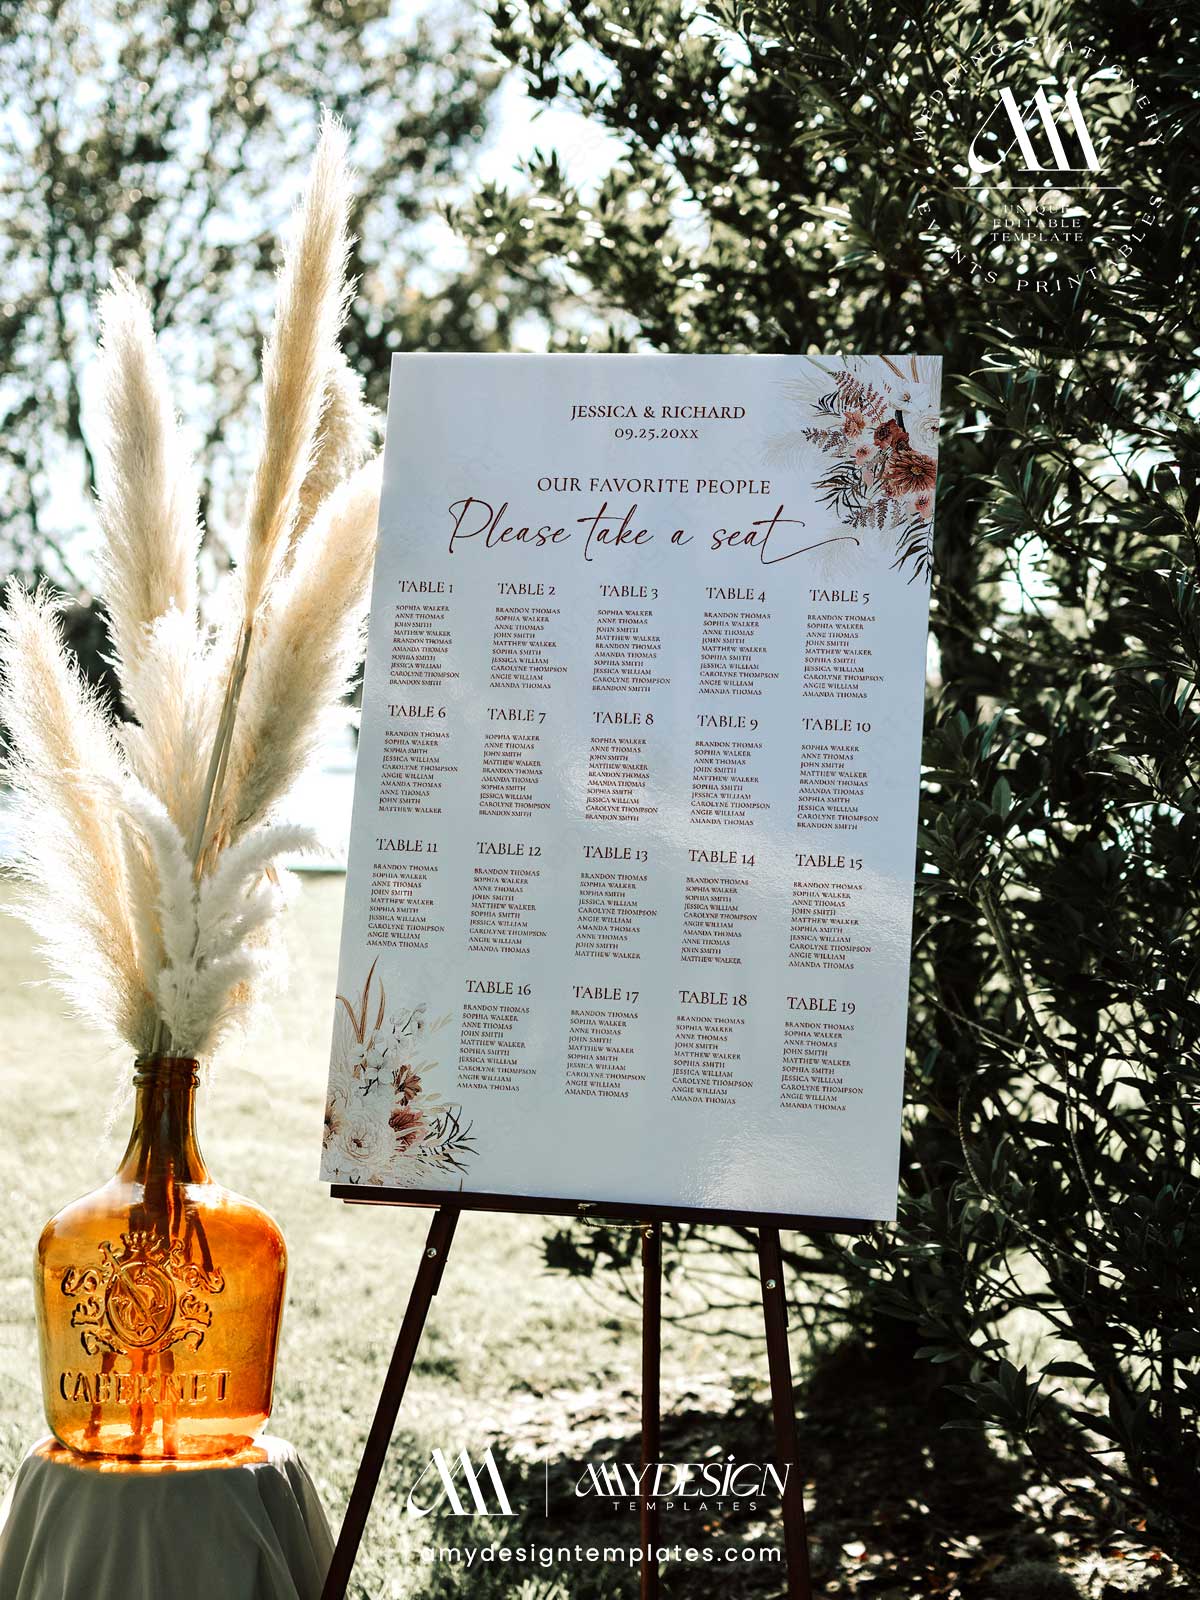 WEDDING STATIONERY
EVENTS PRINTABLES
UNIQUE
EDITABLE
TEMPLATE
JESSICA & RICHARD
09.25.20XX
OUR FAVORITE PEOPLE
Please take a seat
TABLE 1
SOPHIA WALKER
ANNE THOMAS
JOHN SMITH
MATTHEW WALKER
BRANDON THOMAS
AMANDA THOMAS
SOPHIA SMITH
JESSICA WILLIAM
CAROLYNE THOMPSON
BRANDON SMITH
TABLE 2
BRANDON THOMAS
SOPHIA WALKER
ANNE THOMAS
JOHN SMITH
MATTHEW WALKER
SOPHIA SMITH
JESSICA WILLIAM
CAROLYNE THOMPSON
ANGIE WILLIAM
AMANDA THOMAS
TABLE 3
SOPHIA WALKER
ANNE THOMAS
JOHN SMITH
MATTHEW WALKER
BRANDON THOMAS
AMANDA THOMAS
SOPHIA SMITH
JESSICA WILLIAM
CAROLYNE THOMPSON
BRANDON SMITH
TABLE 4
BRANDON THOMAS
SOPHIA WALKER
ANNE THOMAS
JOHN SMITH
MATTHEW WALKER
SOPHIA SMITH
JESSICA WILLIAM
CAROLYNE THOMPSON
ANGIE WILLIAM
AMANDA THOMAS
TABLE 5
BRANDON THOMAS
SOPHIA WALKER
ANNE THOMAS
JOHN SMITH
MATTHEW WALKER
SOPHIA SMITH
JESSICA WILLIAM
CAROLYNE THOMPSON
ANGIE WILLIAM
AMANDA THOMAS
TABLE 6
BRANDON THOMAS
SOPHIA WALKER
SOPHIA SMITH
JESSICA WILLIAM
CAROLYNE THOMPSON
ANGIE WILLIAM
AMANDA THOMAS
ANNE THOMAS
JOHN SMITH
MATTHEW WALKER
TABLE 7
SOPHIA WALKER
ANNE THOMAS
JOHN SMITH
MATTHEW WALKER
BRANDON THOMAS
AMANDA THOMAS
SOPHIA SMITH
JESSICA WILLIAM
CAROLYNE THOMPSON
BRANDON SMITH
TABLE 8
SOPHIA WALKER
ANNE THOMAS
JOHN SMITH
MATTHEW WALKER
BRANDON THOMAS
AMANDA THOMAS
SOPHIA SMITH
JESSICA WILLIAM
CAROLYNE THOMPSON
BRANDON SMITH
TABLE 9
BRANDON THOMAS
SOPHIA WALKER
ANNE THOMAS
JOHN SMITH
MATTHEW WALKER
SOPHIA SMITH
JESSICA WILLIAM
CAROLYNE THOMPSON
ANGIE WILLIAM
AMANDA THOMAS
TABLE 10
SOPHIA WALKER
ANNE THOMAS
JOHN SMITH
MATTHEW WALKER
BRANDON THOMAS
AMANDA THOMAS
SOPHIA SMITH
JESSICA WILLIAM
CAROLYNE THOMPSON
BRANDON SMITH
TABLE 11
BRANDON THOMAS
SOPHIA WALKER
ANNE THOMAS
JOHN SMITH
MATTHEW WALKER
SOPHIA SMITH
JESSICA WILLIAM
CAROLYNE THOMPSON
ANGIE WILLIAM
AMANDA THOMAS
TABLE 12
BRANDON THOMAS
SOPHIA WALKER
ANNE THOMAS
JOHN SMITH
MATTHEW WALKER
SOPHIA SMITH
JESSICA WILLIAM
CAROLYNE THOMPSON
ANGIE WILLIAM
AMANDA THOMAS
TABLE 13
BRANDON THOMAS
SOPHIA WALKER
SOPHIA SMITH
JESSICA WILLIAM
CAROLYNE THOMPSON
ANGIE WILLIAM
AMANDA THOMAS
ANNE THOMAS
JOHN SMITH
MATTHEW WALKER
TABLE 14
BRANDON THOMAS
SOPHIA WALKER
SOPHIA SMITH
JESSICA WILLIAM
CAROLYNE THOMPSON
ANGIE WILLIAM
AMANDA THOMAS
ANNE THOMAS
JOHN SMITH
MATTHEW WALKER
TABLE 15
BRANDON THOMAS
SOPHIA WALKER
ANNE THOMAS
JOHN SMITH
MATTHEW WALKER
SOPHIA SMITH
JESSICA WILLIAM
CAROLYNE THOMPSON
ANGIE WILLIAM
AMANDA THOMAS
TABLE 16
BRANDON THOMAS
SOPHIA WALKER
ANNE THOMAS
JOHN SMITH
MATTHEW WALKER
SOPHIA SMITH
JESSICA WILLIAM
CAROLYNE THOMPSON
ANGIE WILLIAM
AMANDA THOMAS
TABLE 17
BRANDON THOMAS
SOPHIA WALKER
ANNE THOMAS
JOHN SMITH
MATTHEW WALKER
SOPHIA SMITH
JESSICA WILLIAM
CAROLYNE THOMPSON
ANGIE WILLIAM
AMANDA THOMAS
TABLE 18
BRANDON THOMAS
SOPHIA WALKER
ANNE THOMAS
JOHN SMITH
MATTHEW WALKER
SOPHIA SMITH
JESSICA WILLIAM
CAROLYNE THOMPSON
ANGIE WILLIAM
AMANDA THOMAS
TABLE 19
BRANDON THOMAS
SOPHIA WALKER
ANNE THOMAS
JOHN SMITH
MATTHEW WALKER
SOPHIA SMITH
JESSICA WILLIAM
CAROLYNE THOMPSON
ANGIE WILLIAM
AMANDA THOMAS
CABERNET
AMY DESIGN
TEMPLATES
amydesigntemplates.com